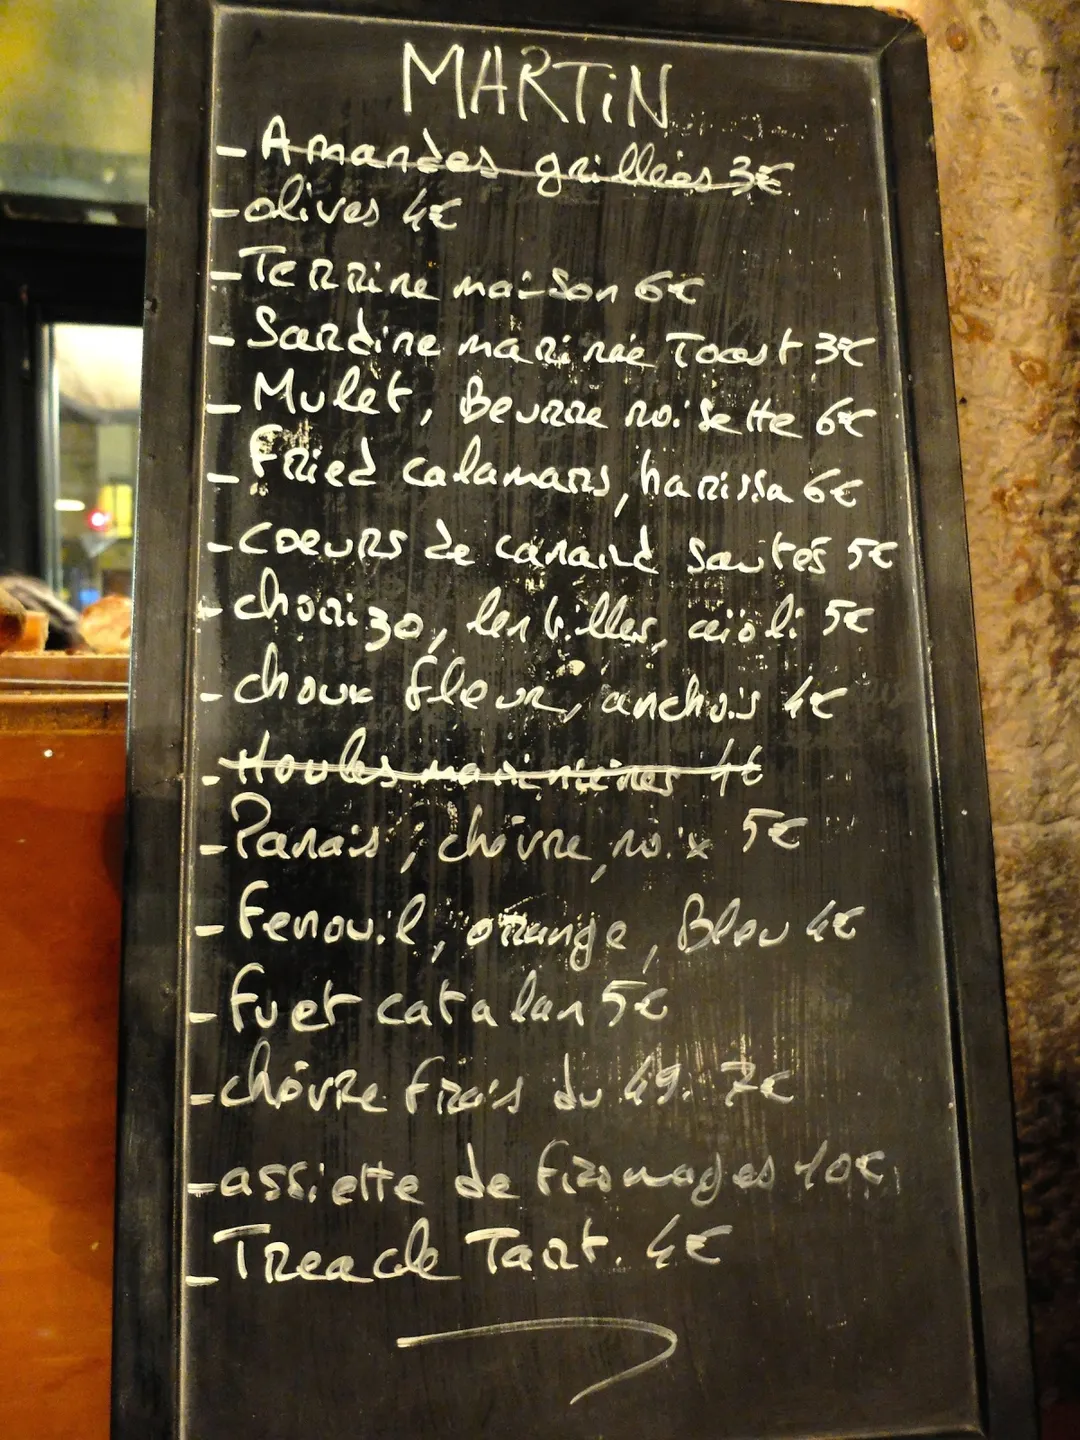 MARTiN
- Amandes grillées 3€
- olives 4€
- Terrine maison 6€
- Sardine marinée Toast 3€
- Mulet, Beurre noisette 6€
- Fried calamars, harissa 6€
- coeurs de canard sautés 5€
- chorizo, lentilles, aïoli 5€
- choux fleur, anchois 4€
- Moules marinières 4€
- Panais, chèvre, noix 5€
- Fenouil, orange, Bleu 4€
- fuet catalan 5€
- chèvre frais du 49. 7€
- assiette de fromages 10€
- Treacle Tart. 4€